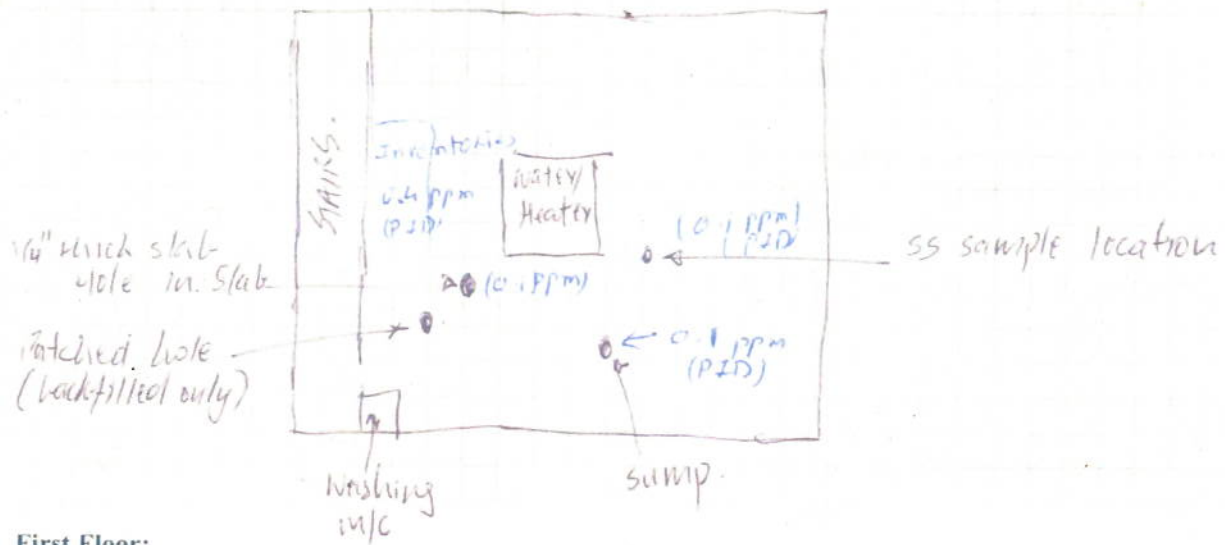 STAIRS.
Inventories
0.4 ppm
(PID)
Water/
Heater
(0.1 ppm)
(PID)
SS sample location
1/4" thick slab
Hole in Slab
(0.1 ppm)
Patched hole
(backfilled only)
0.1 ppm
(PID)
Washing
m/c
sump.
First Floor: